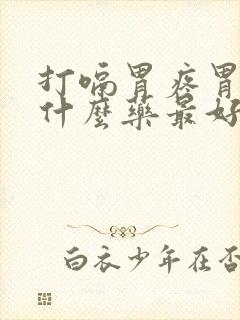 打嗝胃疼胃
什麼藥最好
白衣少年在否